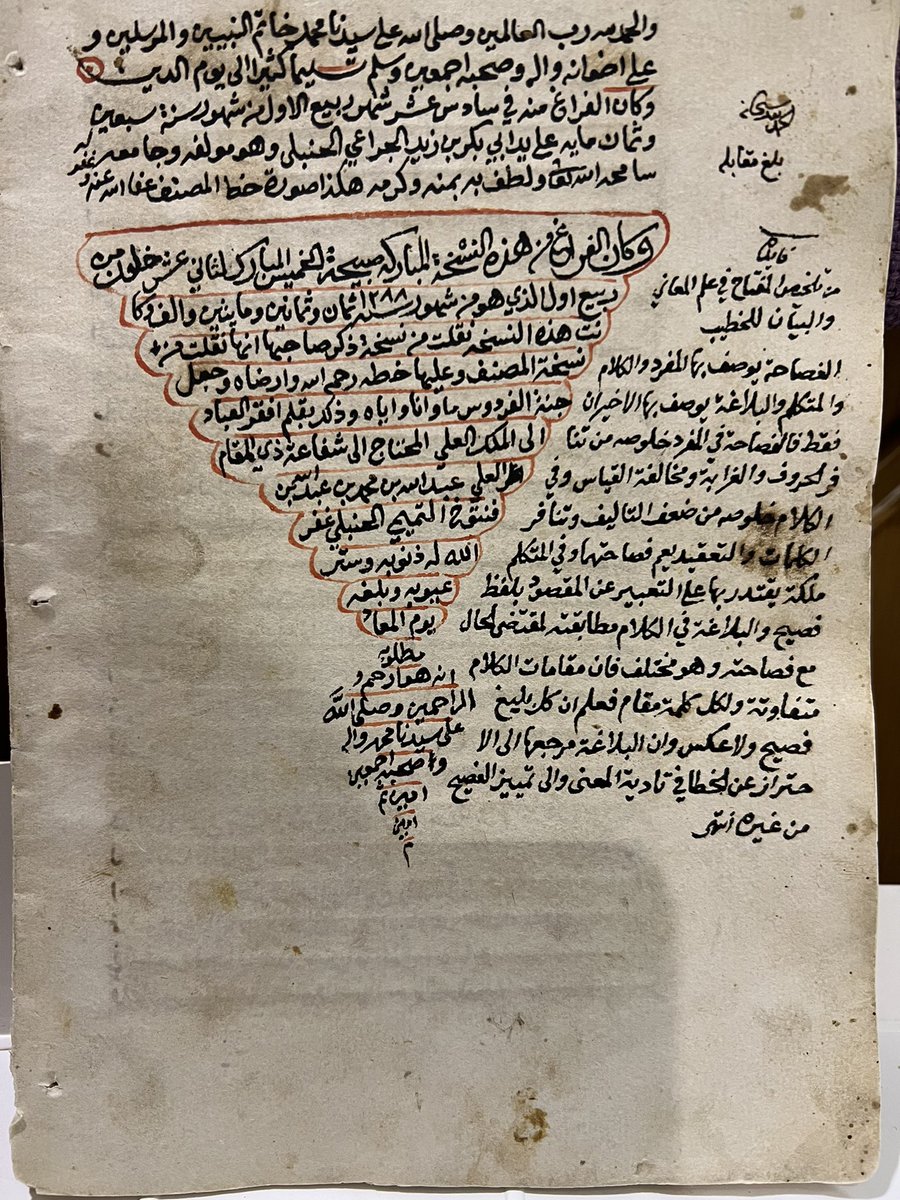 والحمد لله رب العالمين وصلى الله على سيدنا محمد خاتم النبيين والمرسلين و
على اخوانه واله وصحبه اجمعين وسلم تسليما كثيرا الى يوم الدين
وكان الفراغ منه في سادس عشر شهور ربيع الاول من شهور سنة سبعين
وثمان مايه على يد ابي بكر بن زيد الجراعي الحنبلي وهو مولفه وجامعه
سامحه الله تعالى ولطف به بمنه وكرمه هكذا صورة خط المصنف عفا الله عنه
بلغ مقابله
وكان الفراغ من هذه النسخة المباركه صبيحة الخميس المبارك لثاني عشر خلون من
ربيع اول الذي هو من شهور سنة ١٢٨٨ ثمان وثمانين ومايتين والف وكا
نت هذه النسخه نقلت من نسخة ذكر صاحبها انها نقلت من
نسخة المصنف وعليها خطه رحمه الله وارضاه وجعل
جنة الفردوس ماوانا واياه وذلك بقلم افقر العباد
الى الملك العلي المحتاج الى شفاعة ذي المقام
العلي عبد الله بن محمد بن عبد الله بن
فنتوخ التميمي الحنبلي غفر
الله له ذنوبه وستر
عيوبه وبلغه
يوم المعاد
مطلوبه
انه هو ارحم
الراحمين وصلى الله
على سيدنا محمد واله
وصحبه اجمعين
امين تم
امين
م
فائدة
من تلخيص المفتاح في علم المعاني
والبيان للخطيب
الفصاحة يوصف بها المفرد والكلام
والمتكلم والبلاغة يوصف بها الاخيران
فقط فالفصاحة في المفرد خلوصه من تنا
فر الحروف والغرابة ومخالفة القياس وفي
الكلام خلوصه من ضعف التاليف وتنافر
الكلمات والتعقيد مع فصاحتها وفي المتكلم
ملكة يقتدر بها على التعبير عن المقصود بلفظ
فصيح والبلاغة في الكلام مطابقته لمقتضى الحال
مع فصاحته وهو مختلف فان مقامات الكلام
متفاوتة ولكل كلمة مقام فعلم ان كل بليغ
فصيح ولا عكس وان البلاغة مرجعها الى الا
حتراز عن الخطا في تادية المعنى والى تمييز الفصيح
من غيره انتهى